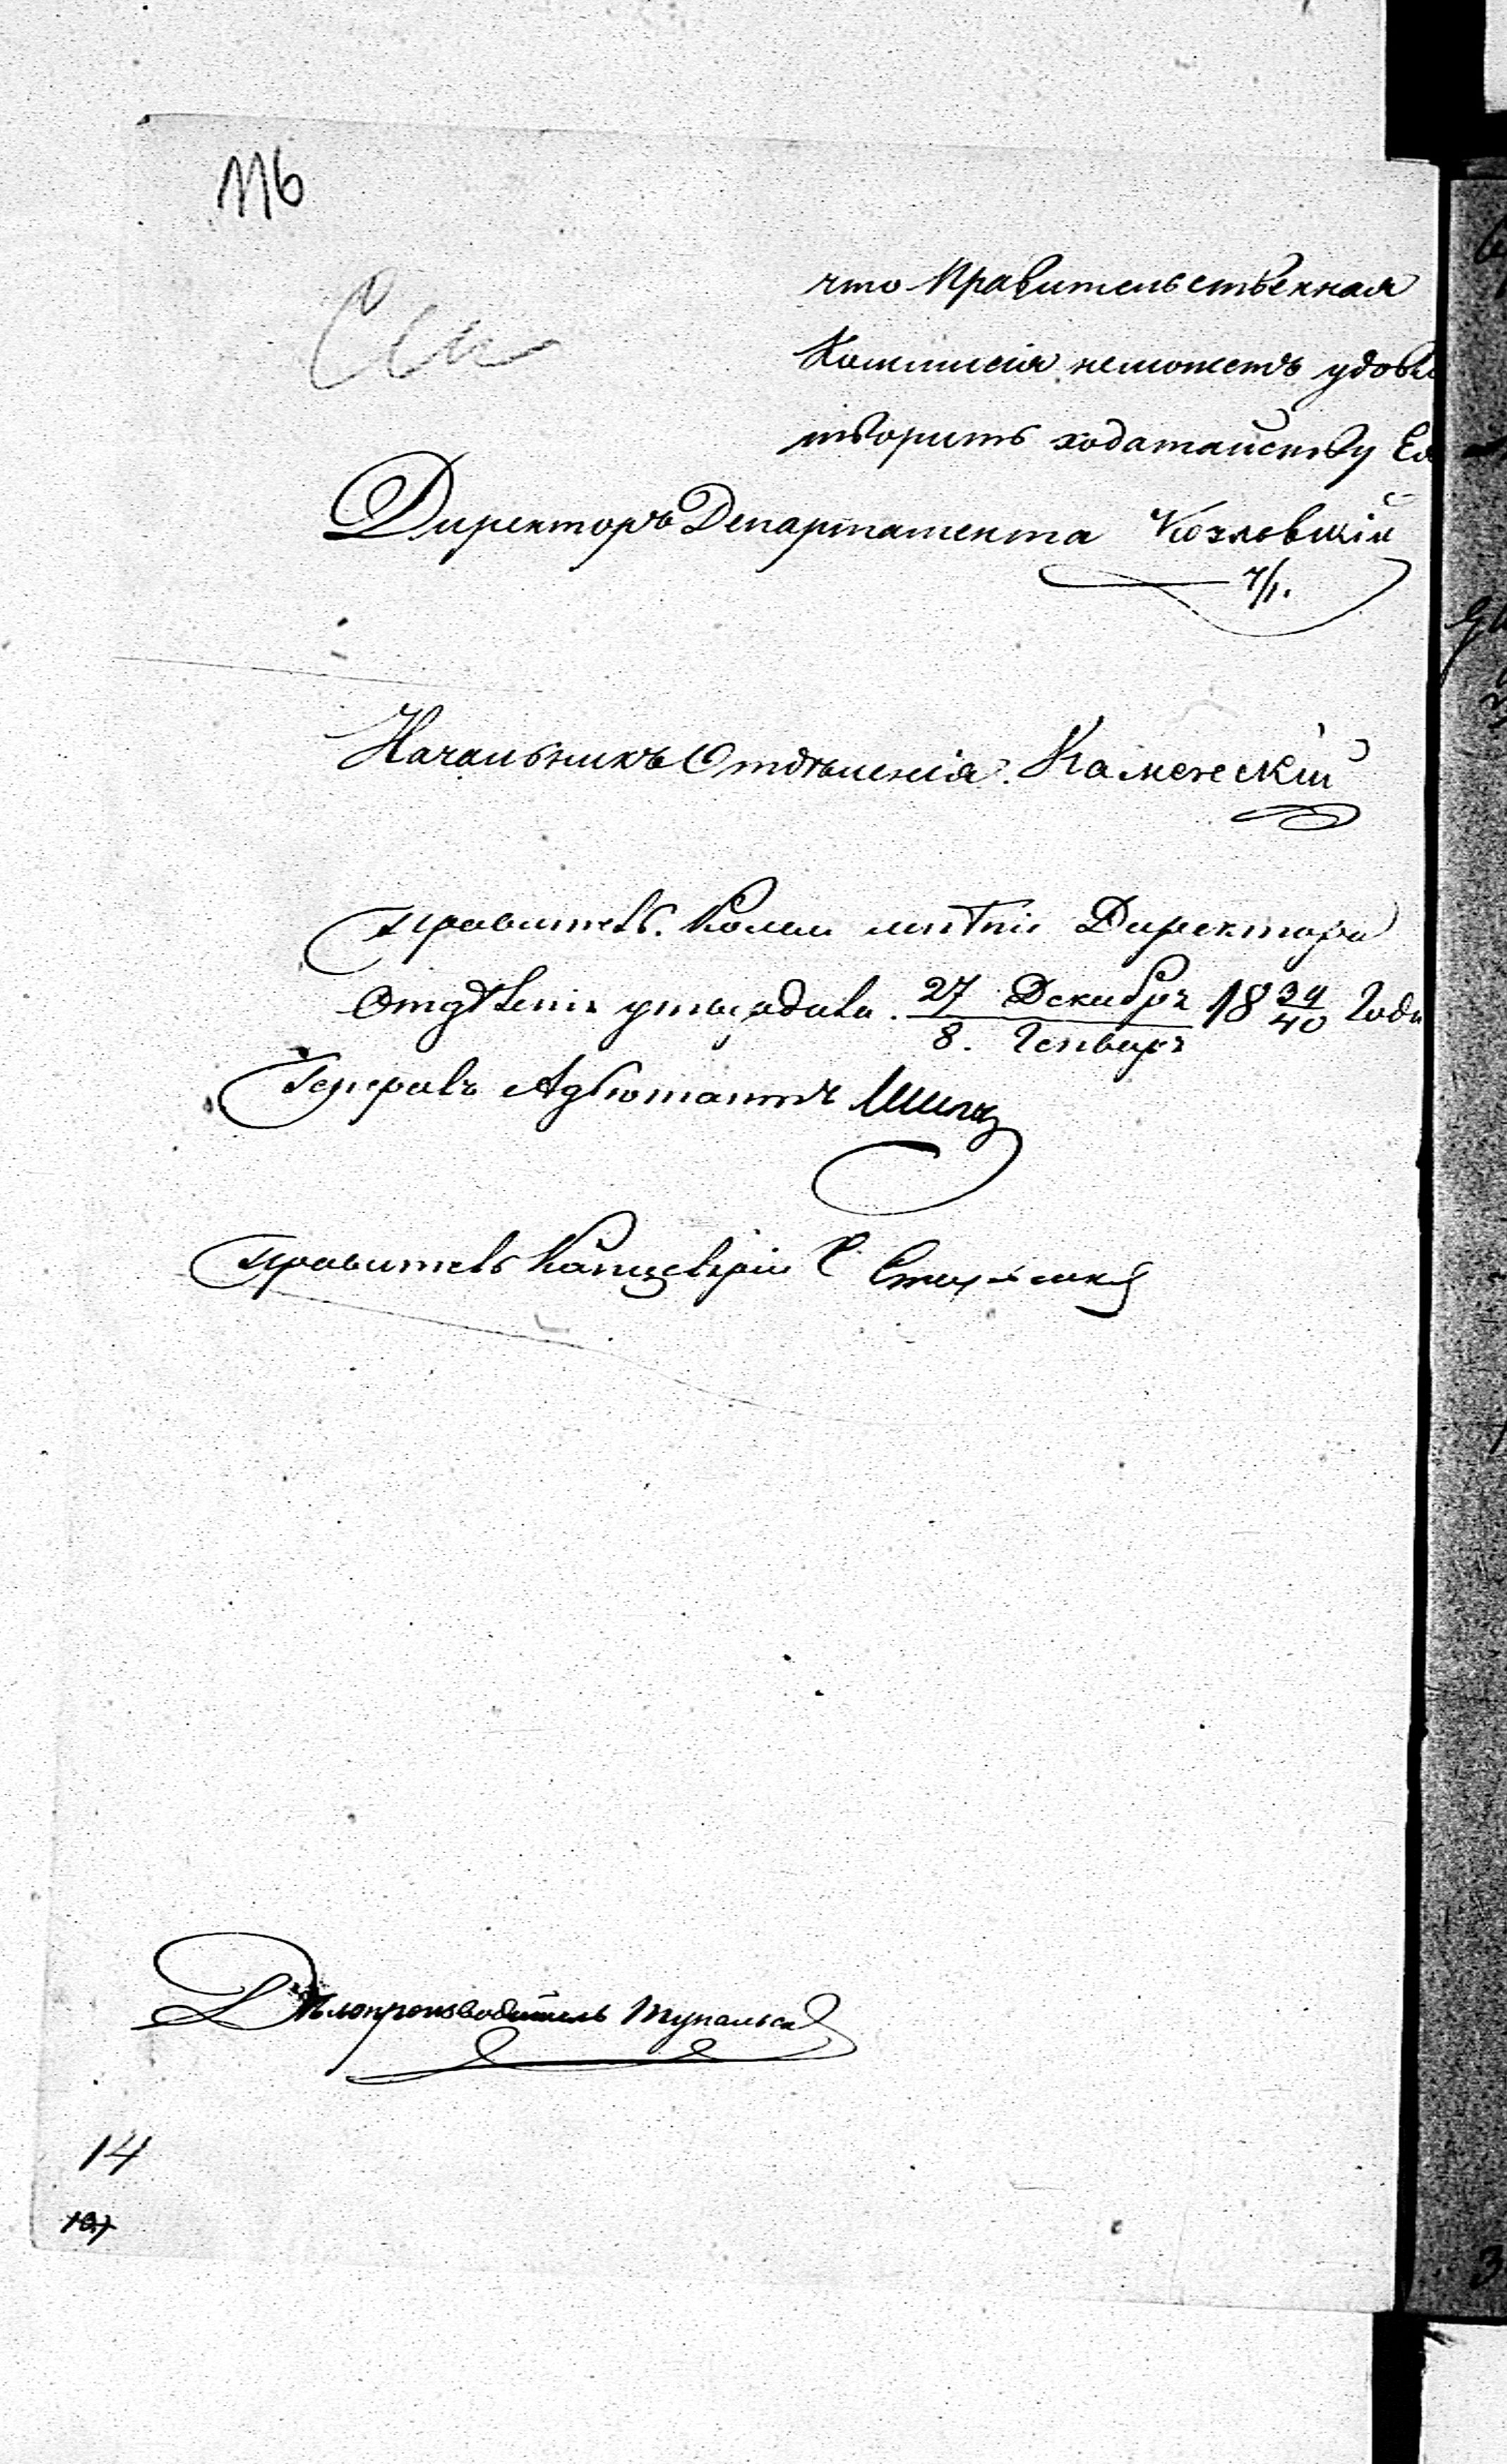 116
что Правительственная
Коммисія неможетъ удовле
творить ходатайству Ея
Директоръ Департамента Козловскій
7/1.
Начальникъ Отдѣленія. Каменскій
Правитель. Комм мнѣніе Директора
Отдѣленія утвердила. 27 Декабря 1839 Года
8. Генваря 40
Генералъ Адъютантъ Шипов
Правитель Канцеляріи
Дѣлопроизводитель Тупальск
14